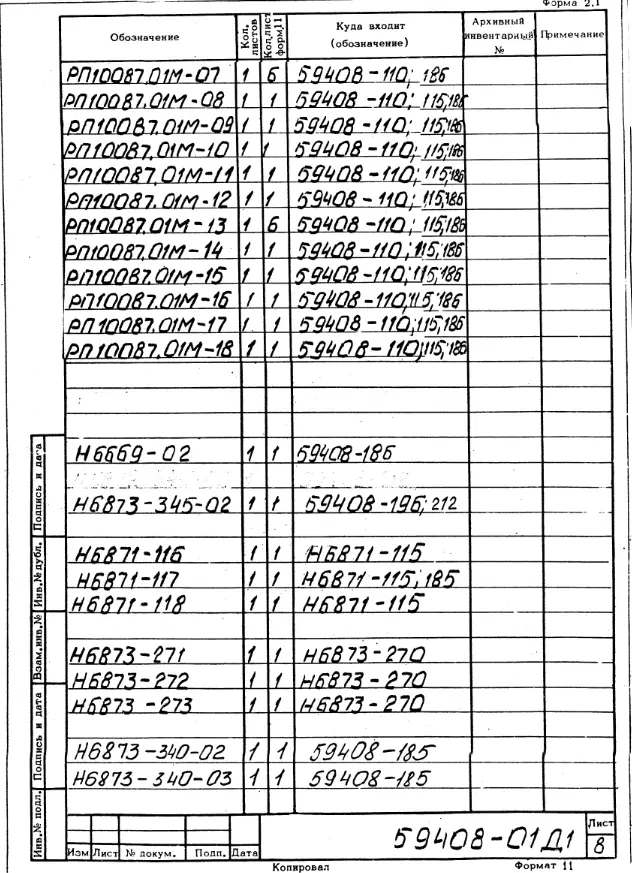 Форма 2.1
Обозначение Кол. листов Кол.лист форм.11 Куда входит (обозначение) Архивный инвентарный № Примечание
РП10087.01М-07 1 6 59408-110; 186
РП10087.01М-08 1 1 59408-110; 115,186
РП10087.01М-09 1 1 59408-110; 115,186
РП10087.01М-10 1 1 59408-110; 115,186
РП10087.01М-11 1 1 59408-110; 115,186
РП10087.01М-12 1 1 59408-110; 115,186
РП10087.01М-13 1 6 59408-110; 115,186
РП10087.01М-14 1 1 59408-110; 115,186
РП10087.01М-15 1 1 59408-110; 115,186
РП10087.01М-16 1 1 59408-110; 115,186
РП10087.01М-17 1 1 59408-110; 115,186
РП10087.01М-18 1 1 59408-110; 115,186
Н6669-02 1 1 59408-186
Н6873-345-02 1 1 59408-196; 212
Н6871-116 1 1 Н6871-115
Н6871-117 1 1 Н6871-115; 185
Н6871-118 1 1 Н6871-115
Н6873-271 1 1 Н6873-270
Н6873-272 1 1 Н6873-270
Н6873-273 1 1 Н6873-270
Н6873-340-02 1 1 59408-185
Н6873-340-03 1 1 59408-185
Инв.№ подл. Подпись и дата Взам.инв.№ Инв.№ дубл. Подпись и дата
Изм Лист № докум. Подп. Дата
59408-01Д1
Лист
8
Копировал Формат 11